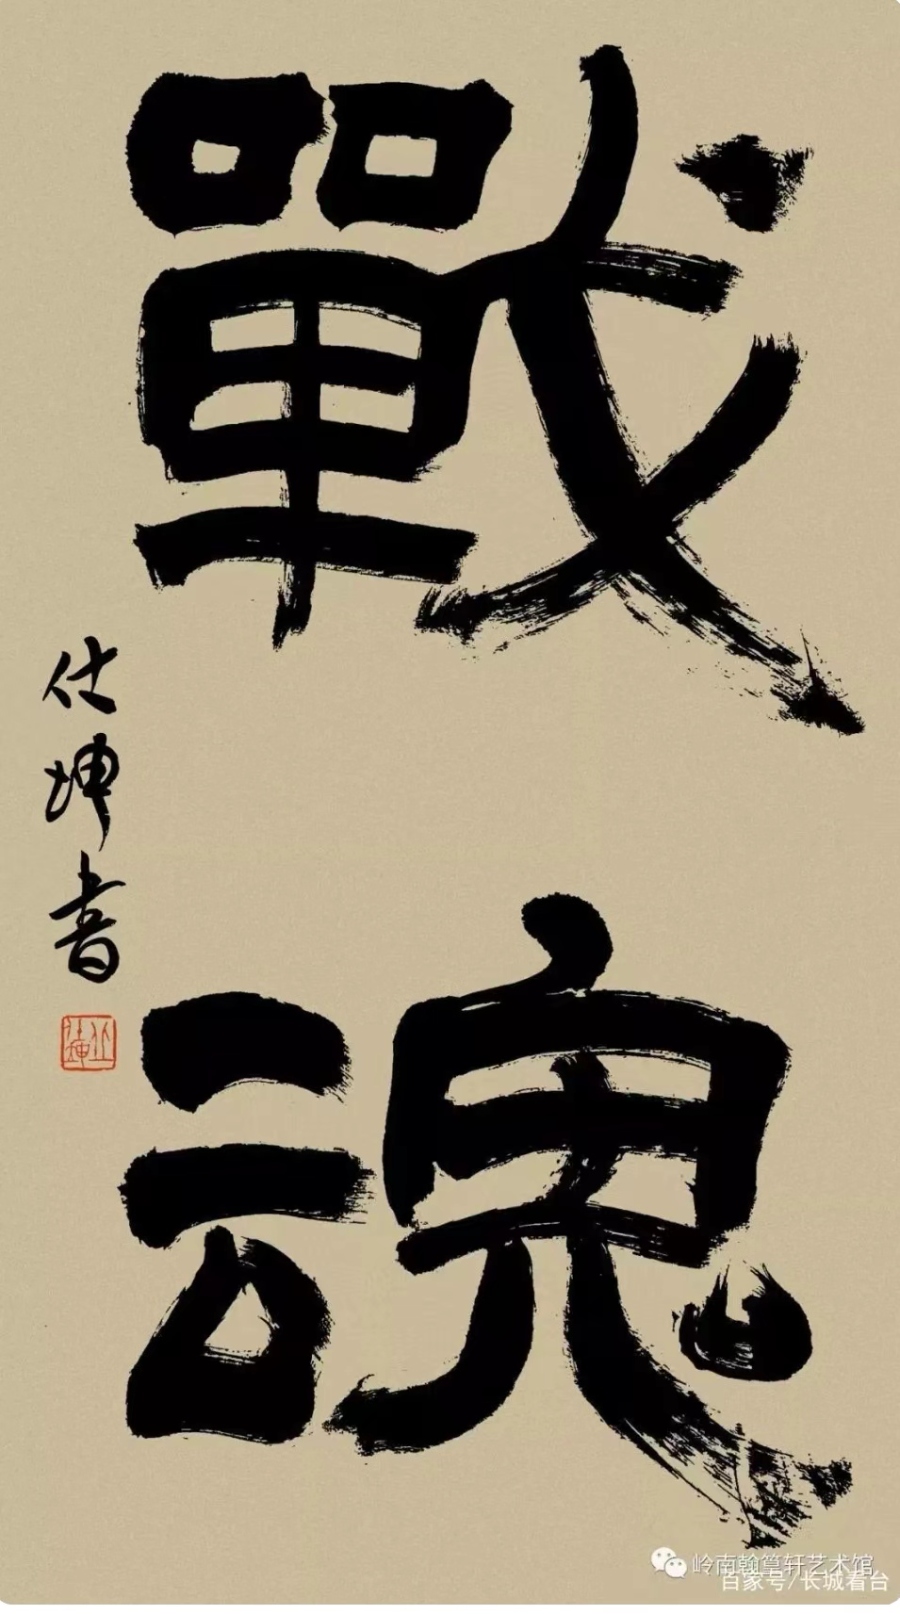 戰魂
仕坤書
岭南翰墨轩艺术馆
百家号/长城看台